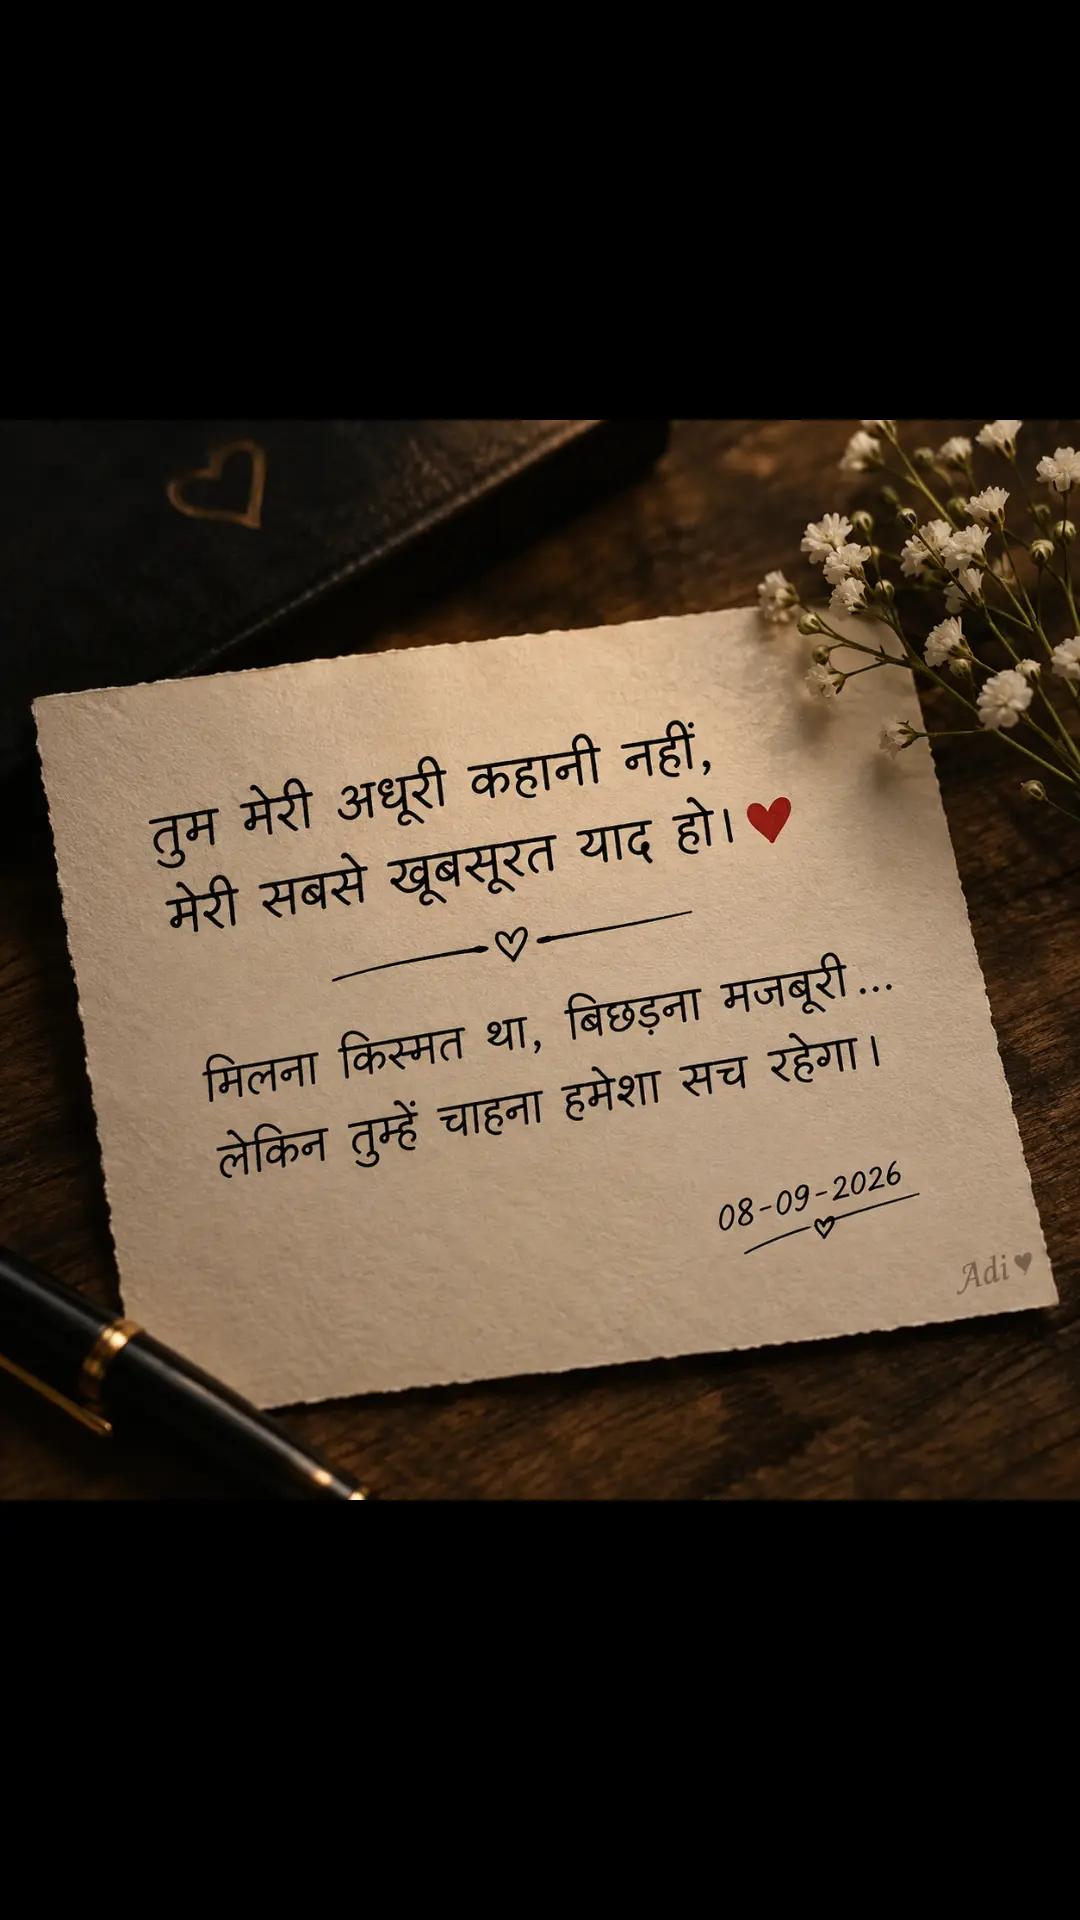 तुम मेरी अधूरी कहानी नहीं,
मेरी सबसे खूबसूरत याद हो।❤️
मिलना किस्मत था, बिछड़ना मजबूरी...
लेकिन तुम्हें चाहना हमेशा सच रहेगा।
08-09-2026
Adi♥